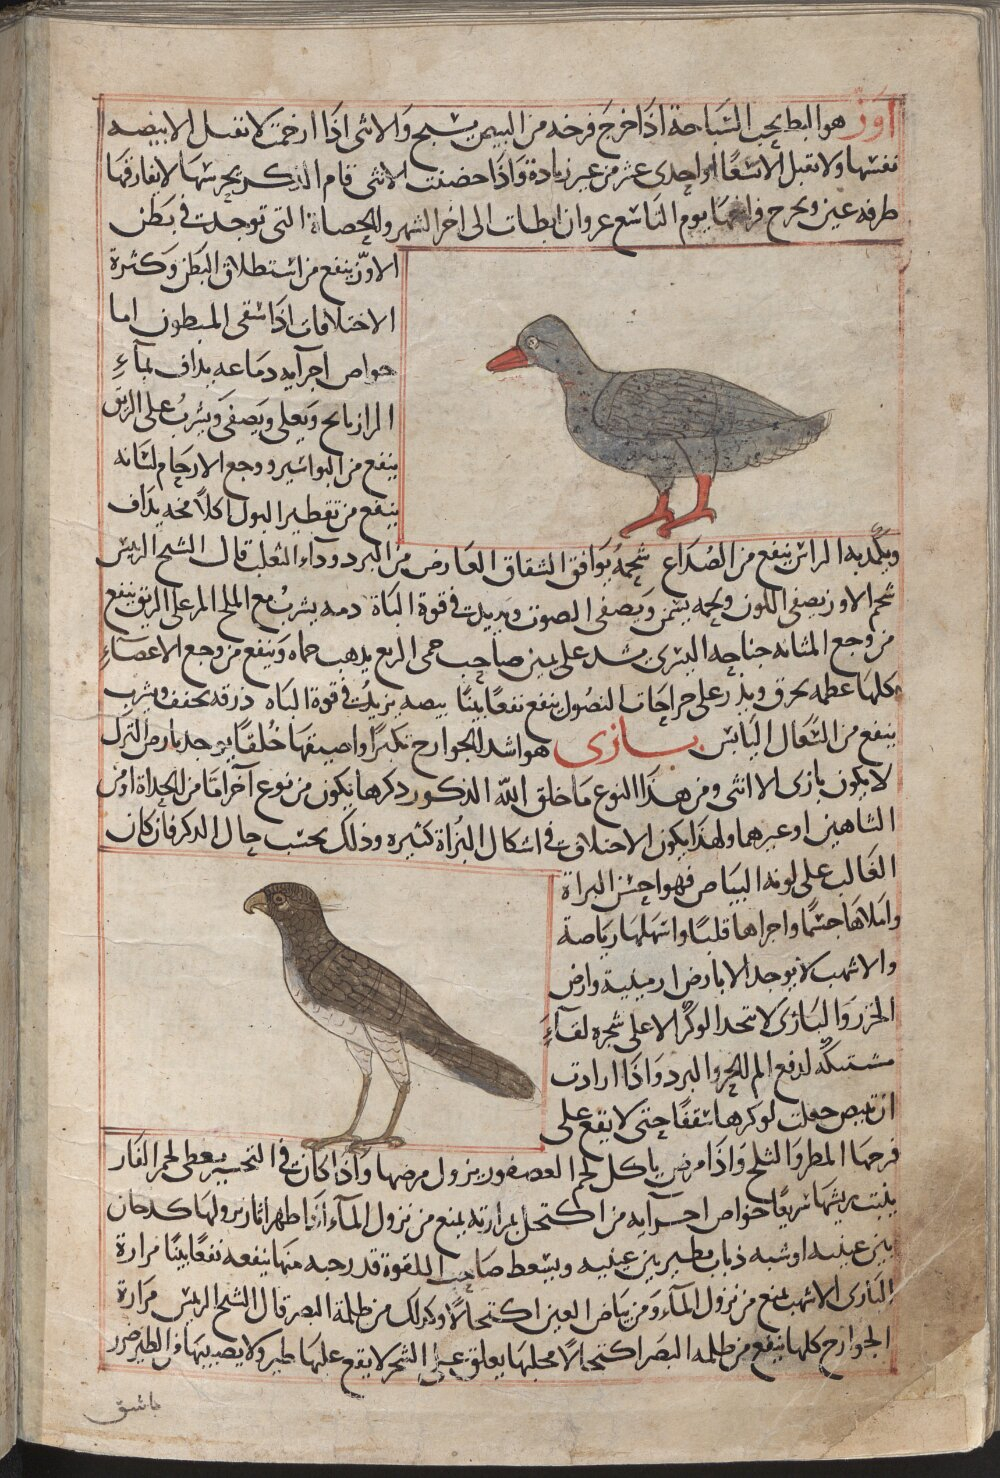 اوز هو البط يحب السباحة اذا خرج فرخه من البيض يسبح والانثى اذا ارخمت لا تقبل الا بيضه
نفسها ولا تقبل الا تسعا او احدى عشر من غير زيادة واذا حضنت الانثى قام الذكر يحرسها لا يفارقها
طرفه عين ويخرج فراخها يوم التاسع عر وان ابطات الى اخر الشهر والحصاة التى توجدت فى بطن
الاوز ينفع من استطلاق البطن وكثرة
الاختلافات اذا سقى المبطون اما
خواص اجرآيه دماغه يداف بمآء
الرازيانج ويغلى ويصفى ويشرب على الريق
ينفع من البواسير ووجع الارحام لسانه
ينفع من تقطير البول اكلا مخه يداف
ويكمد به الراس ينفع من الصداع شحمه يوافق الشقاق العارض من البرد وداء الثعلب قال الشيخ الريس
شحم الاوز يصفى اللون ولحمه يسمن ويصفى الصوت ويزيد فى قوة الباة دمه يشرب مع الملح المر على الريق ينفع
من وجع المثانه جناحه اليسرى يشد على يمين صاحب حمى الربع يذهب حماه وينفع من وجع الاعضاء
كلها عظمه يحرق ويذر على جراحات النصول ينفع نفعا بينا بيضه يزيد فى قوة الباه ذرقه يجفف ويشرب
ينفع من السعال اليابس بازى هو اشد الجوارح تكبرا واضيقها خلقا يوجد بارض الترك
لا يكون بازى الا انثى ومن هذا النوع ما خلق الله الذكور ذكرها يكون من نوع آخر اما من الحداة او من
الشاهين او غيرهما ولهذا يكون الاختلاف فى اشكال البزاة كثيره وذلك بحسب حال الذكر فان كان
الغالب على لونه البياض فهو احسن البزاة
واملاها جسما واجراها قلبا واسهلها رياضة
والاشهب لا يوجد الا بارض ارمينية وارض
الخزر والبازى لا تتخذ الوكر الا على شجره لفآء
مشتبكه لدفع الم الحر والبرد واذا ارادت
ان تبيض جعلت لوكرها سقفا حتى لا يقع على
فرخها المطر والثلج واذا مرض ياكل لحم العصفور يزول مرضها واذا كانت فى التحسير يعطى لحم الفار
ينبت ريشها سريعا خواص اجرآيه من اكتحل بمرارته يمنع من نزول المآء اذا ظهر اثار نزولها كدخان
بين عينيه او شبه ذباب يطير بين عينيه ويسعط صاحب اللقوة قدر حبه منها ينفعه نفعا بينا مرارة
البازى الاشهب يمنع من نزول المآء ومن بياض العين اكتحالا وكذلك من ظلمة البصر قال الشيخ الريس مرارة
الجوارح كلها ينفع من ظلمه البصر اكتحالا مخلبها يعلق على الشجر لا يقع عليها طير ولا يصيبها من الطير ضرر
باشق